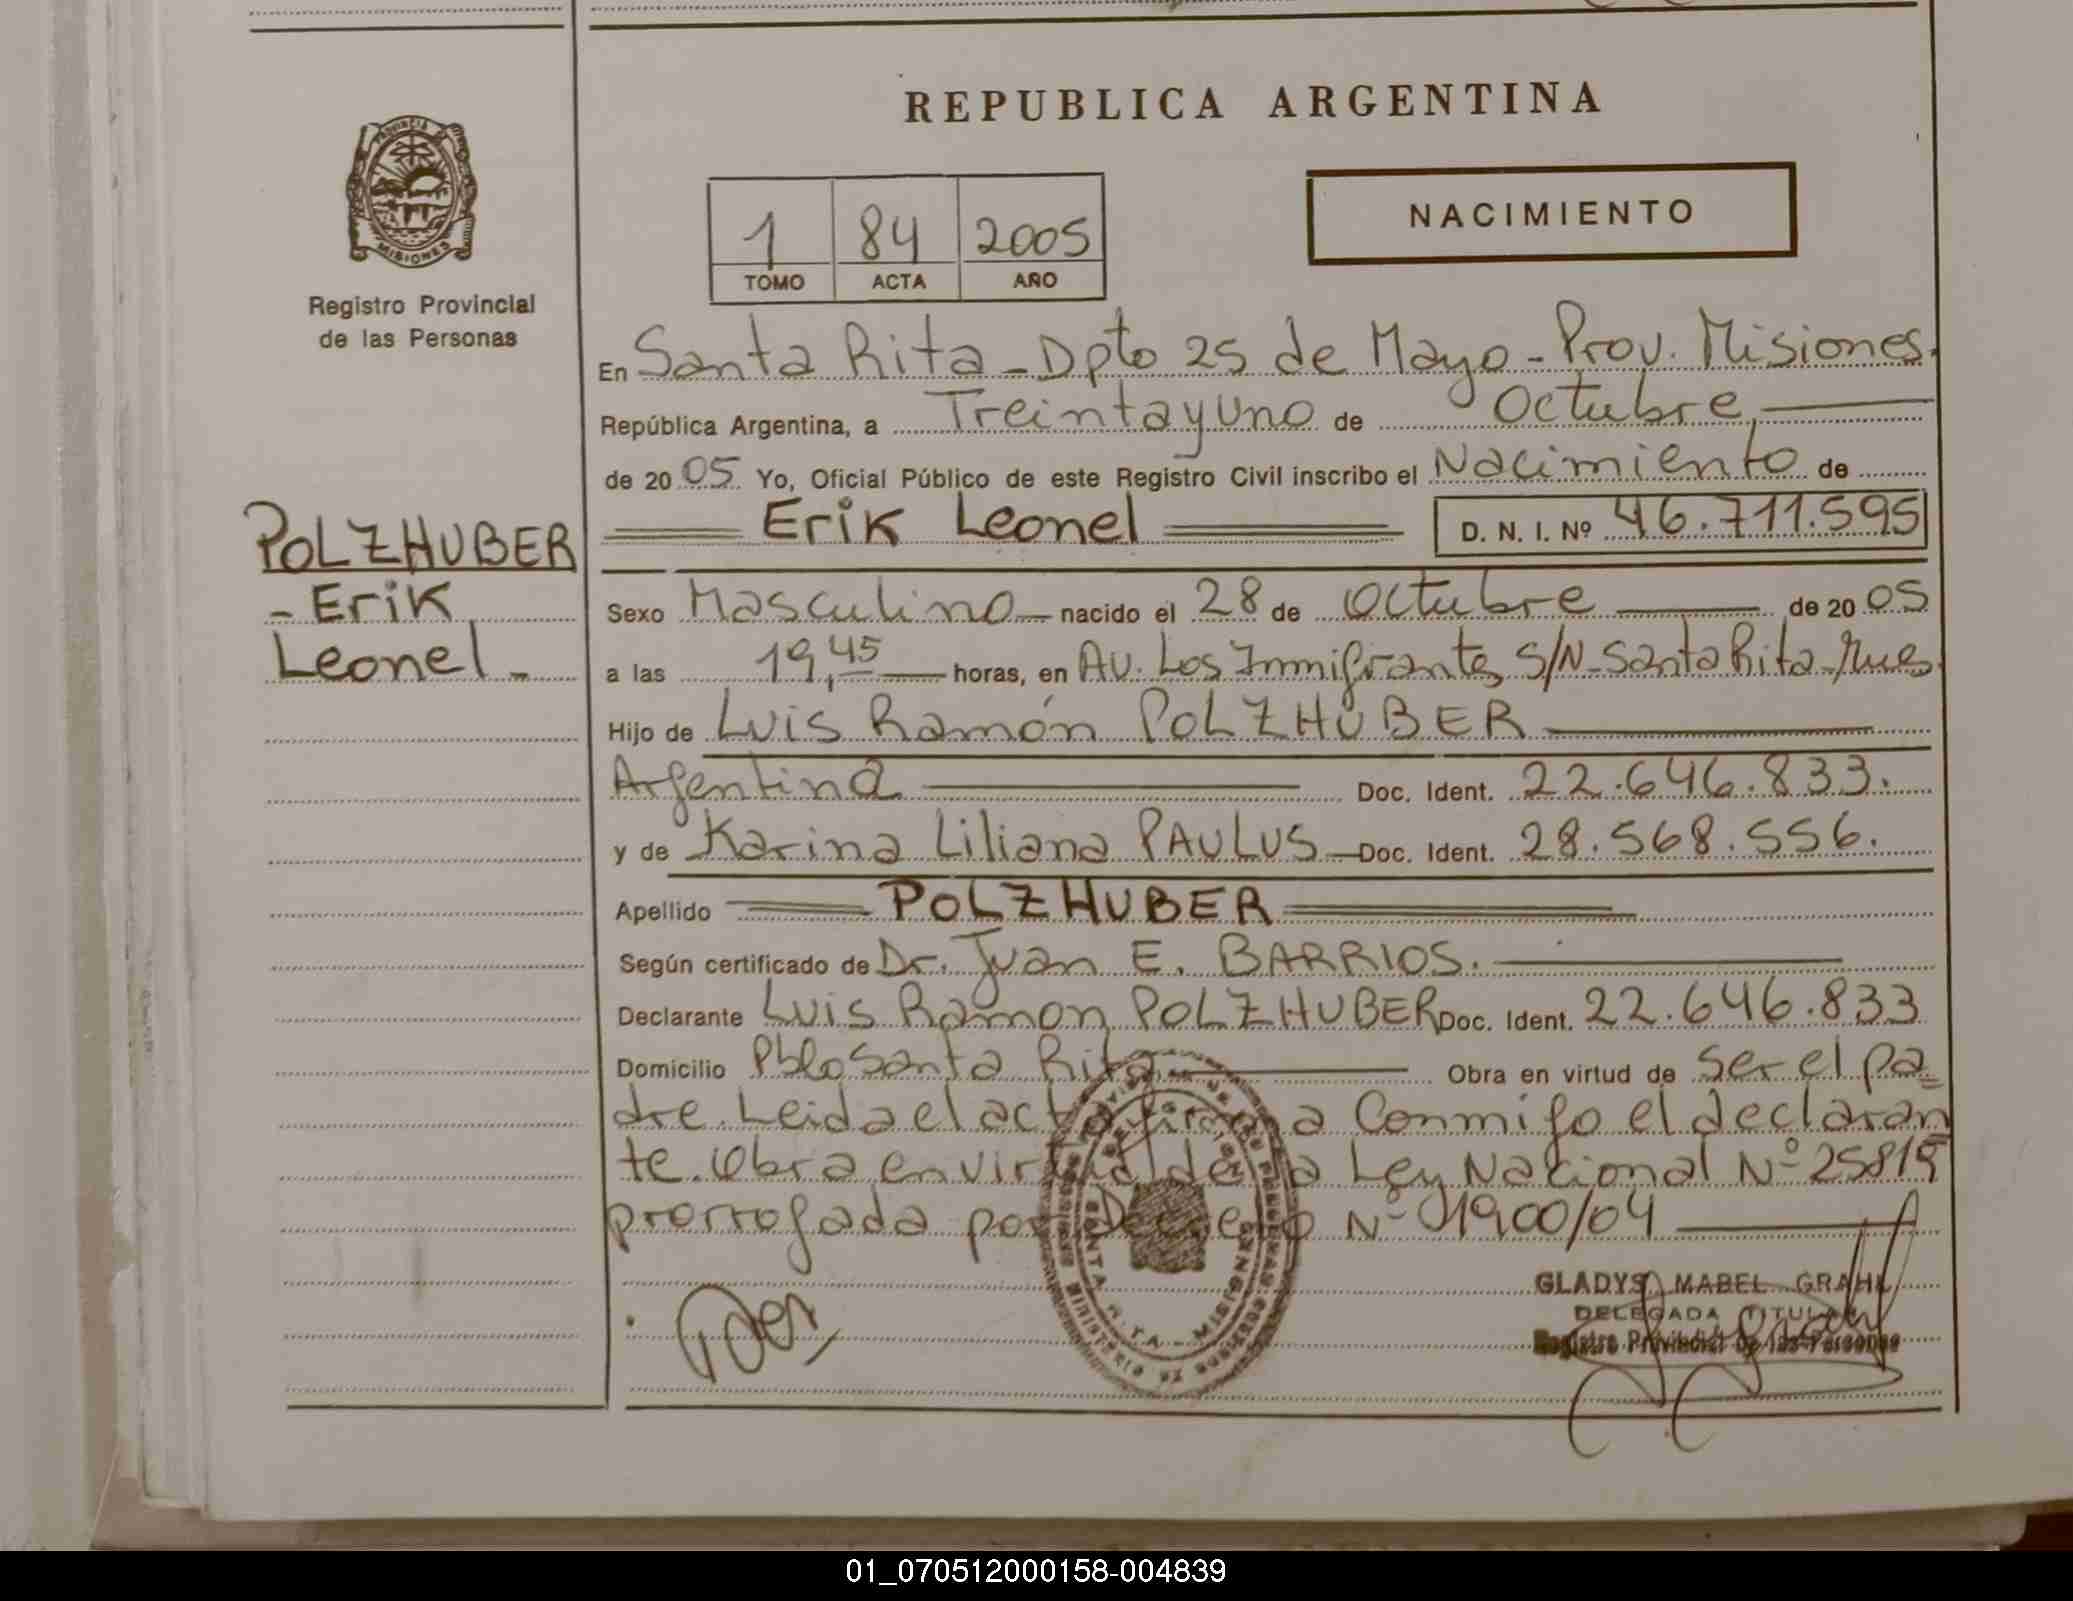 REPUBLICA ARGENTINA
PROVINCIA
MISIONES
Registro Provincial
de las Personas
NACIMIENTO
1 84 2005
TOMO ACTA AÑO
En Santa Rita - Dpto 25 de Mayo - Prov. Misiones.
República Argentina, a Treinta y uno de Octubre
de 20 05 Yo, Oficial Público de este Registro Civil inscribo el Nacimiento de
POLZHUBER
- Erik
Leonel -
Erik Leonel D. N. I. Nº 46.711.595
Sexo Masculino nacido el 28 de Octubre de 20 05
a las 19,45 horas, en Av. Los Inmigrantes S/N - Santa Rita -
Hijo de Luis Ramón POLZHUBER
Argentina Doc. Ident. 22.646.833.
y de Karina Liliana PAULUS - Doc. Ident. 28.568.556.
Apellido POLZHUBER
Según certificado de Dr. Juan E. BARRIOS.
Declarante Luis Ramon POLZHUBER Doc. Ident. 22.646.833
Domicilio Pblo Santa Rita Obra en virtud de ser el pa
dre. Leida el acta firma Conmigo el declaran
te. Obra en virtud de la Ley Nacional Nº 25819
prorrogada por Decreto Nº 01900/04
GLADYS MABEL GRAHL
DELEGADA TITULAR
Registro Provincial de las Personas
SANTA RITA - MISIONES
01_070512000158-004839